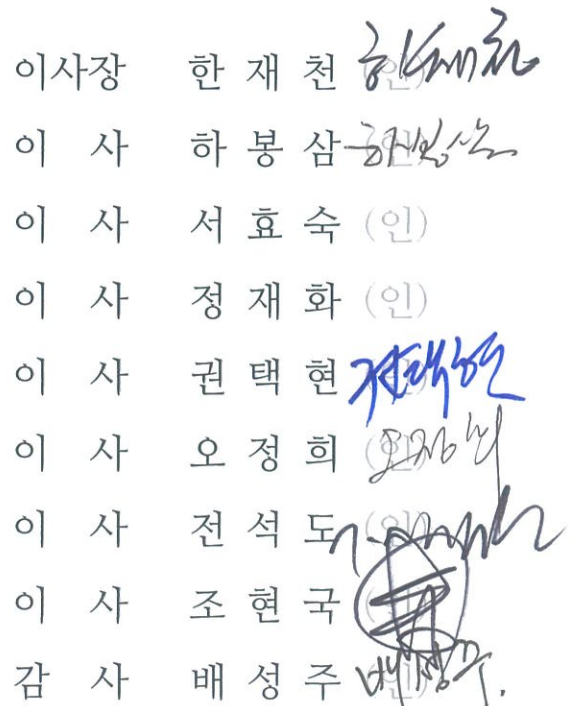 이사장 한 재 천 (인) 한재천
이 사 하 봉 삼 (인) 하봉삼
이 사 서 효 숙 (인)
이 사 정 재 화 (인)
이 사 권 택 현 (인) 권택현
이 사 오 정 희 (인) 오정희
이 사 전 석 도 (인)
이 사 조 현 국 (인)
감 사 배 성 주 (인) 배성주